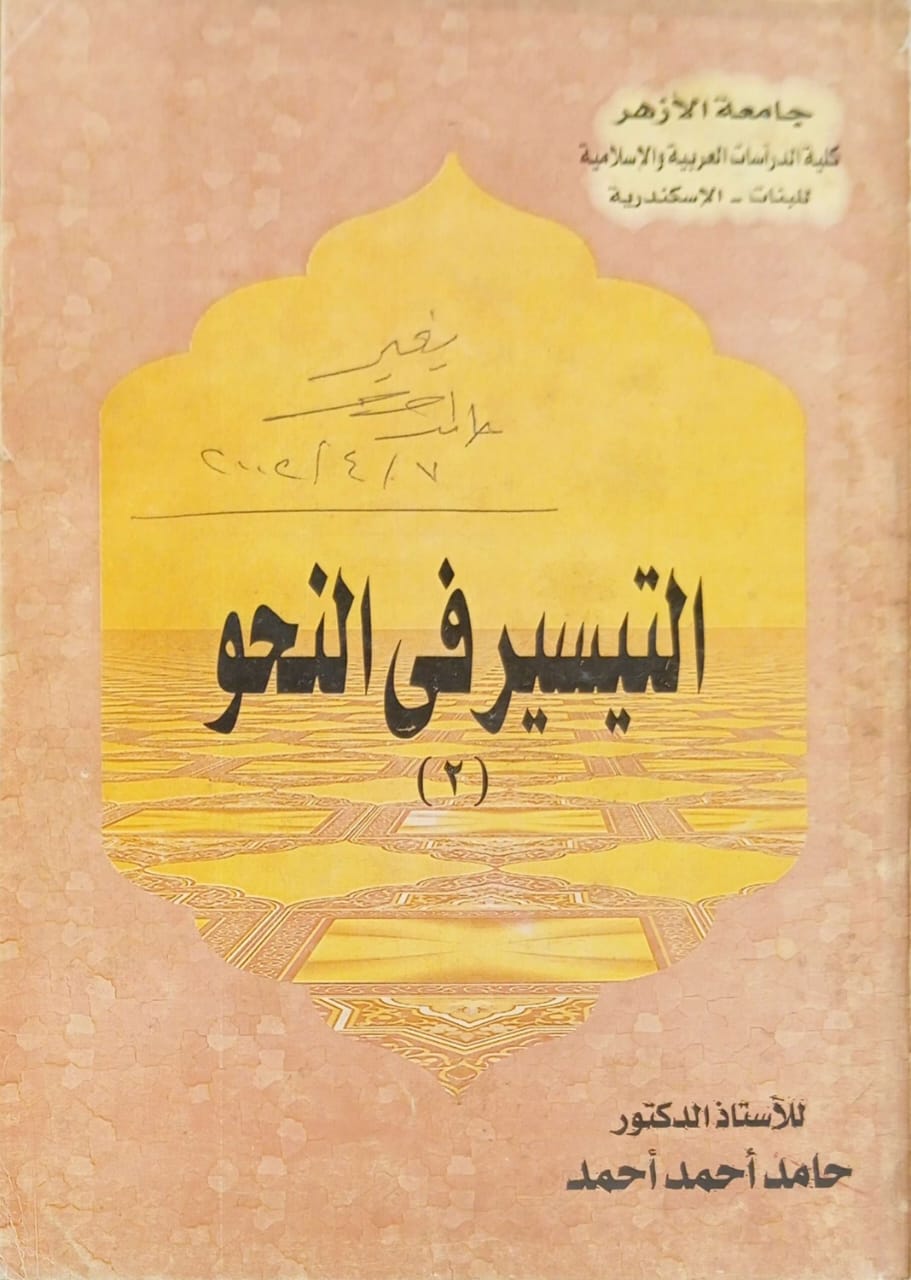 جامعة الأزهر
كلية الدراسات العربية والإسلامية
للبنات - الإسكندرية
٢٠٠٢/٤/٧
التيسير فى النحو
(٢)
للأستاذ الدكتور
حامد أحمد أحمد